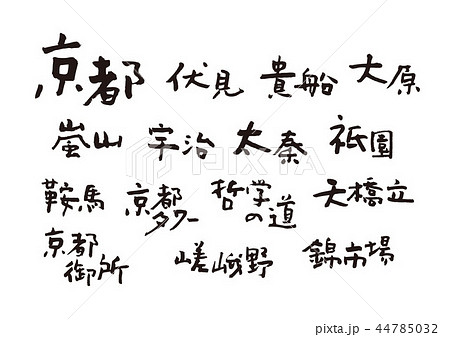 京都 伏見 貴船 大原
嵐山 宇治 太秦 祇園
鞍馬 京都タワー 哲学の道 天橋立
京都御所 嵯峨野 錦市場
PIXTA
pixta.jp - 44785032